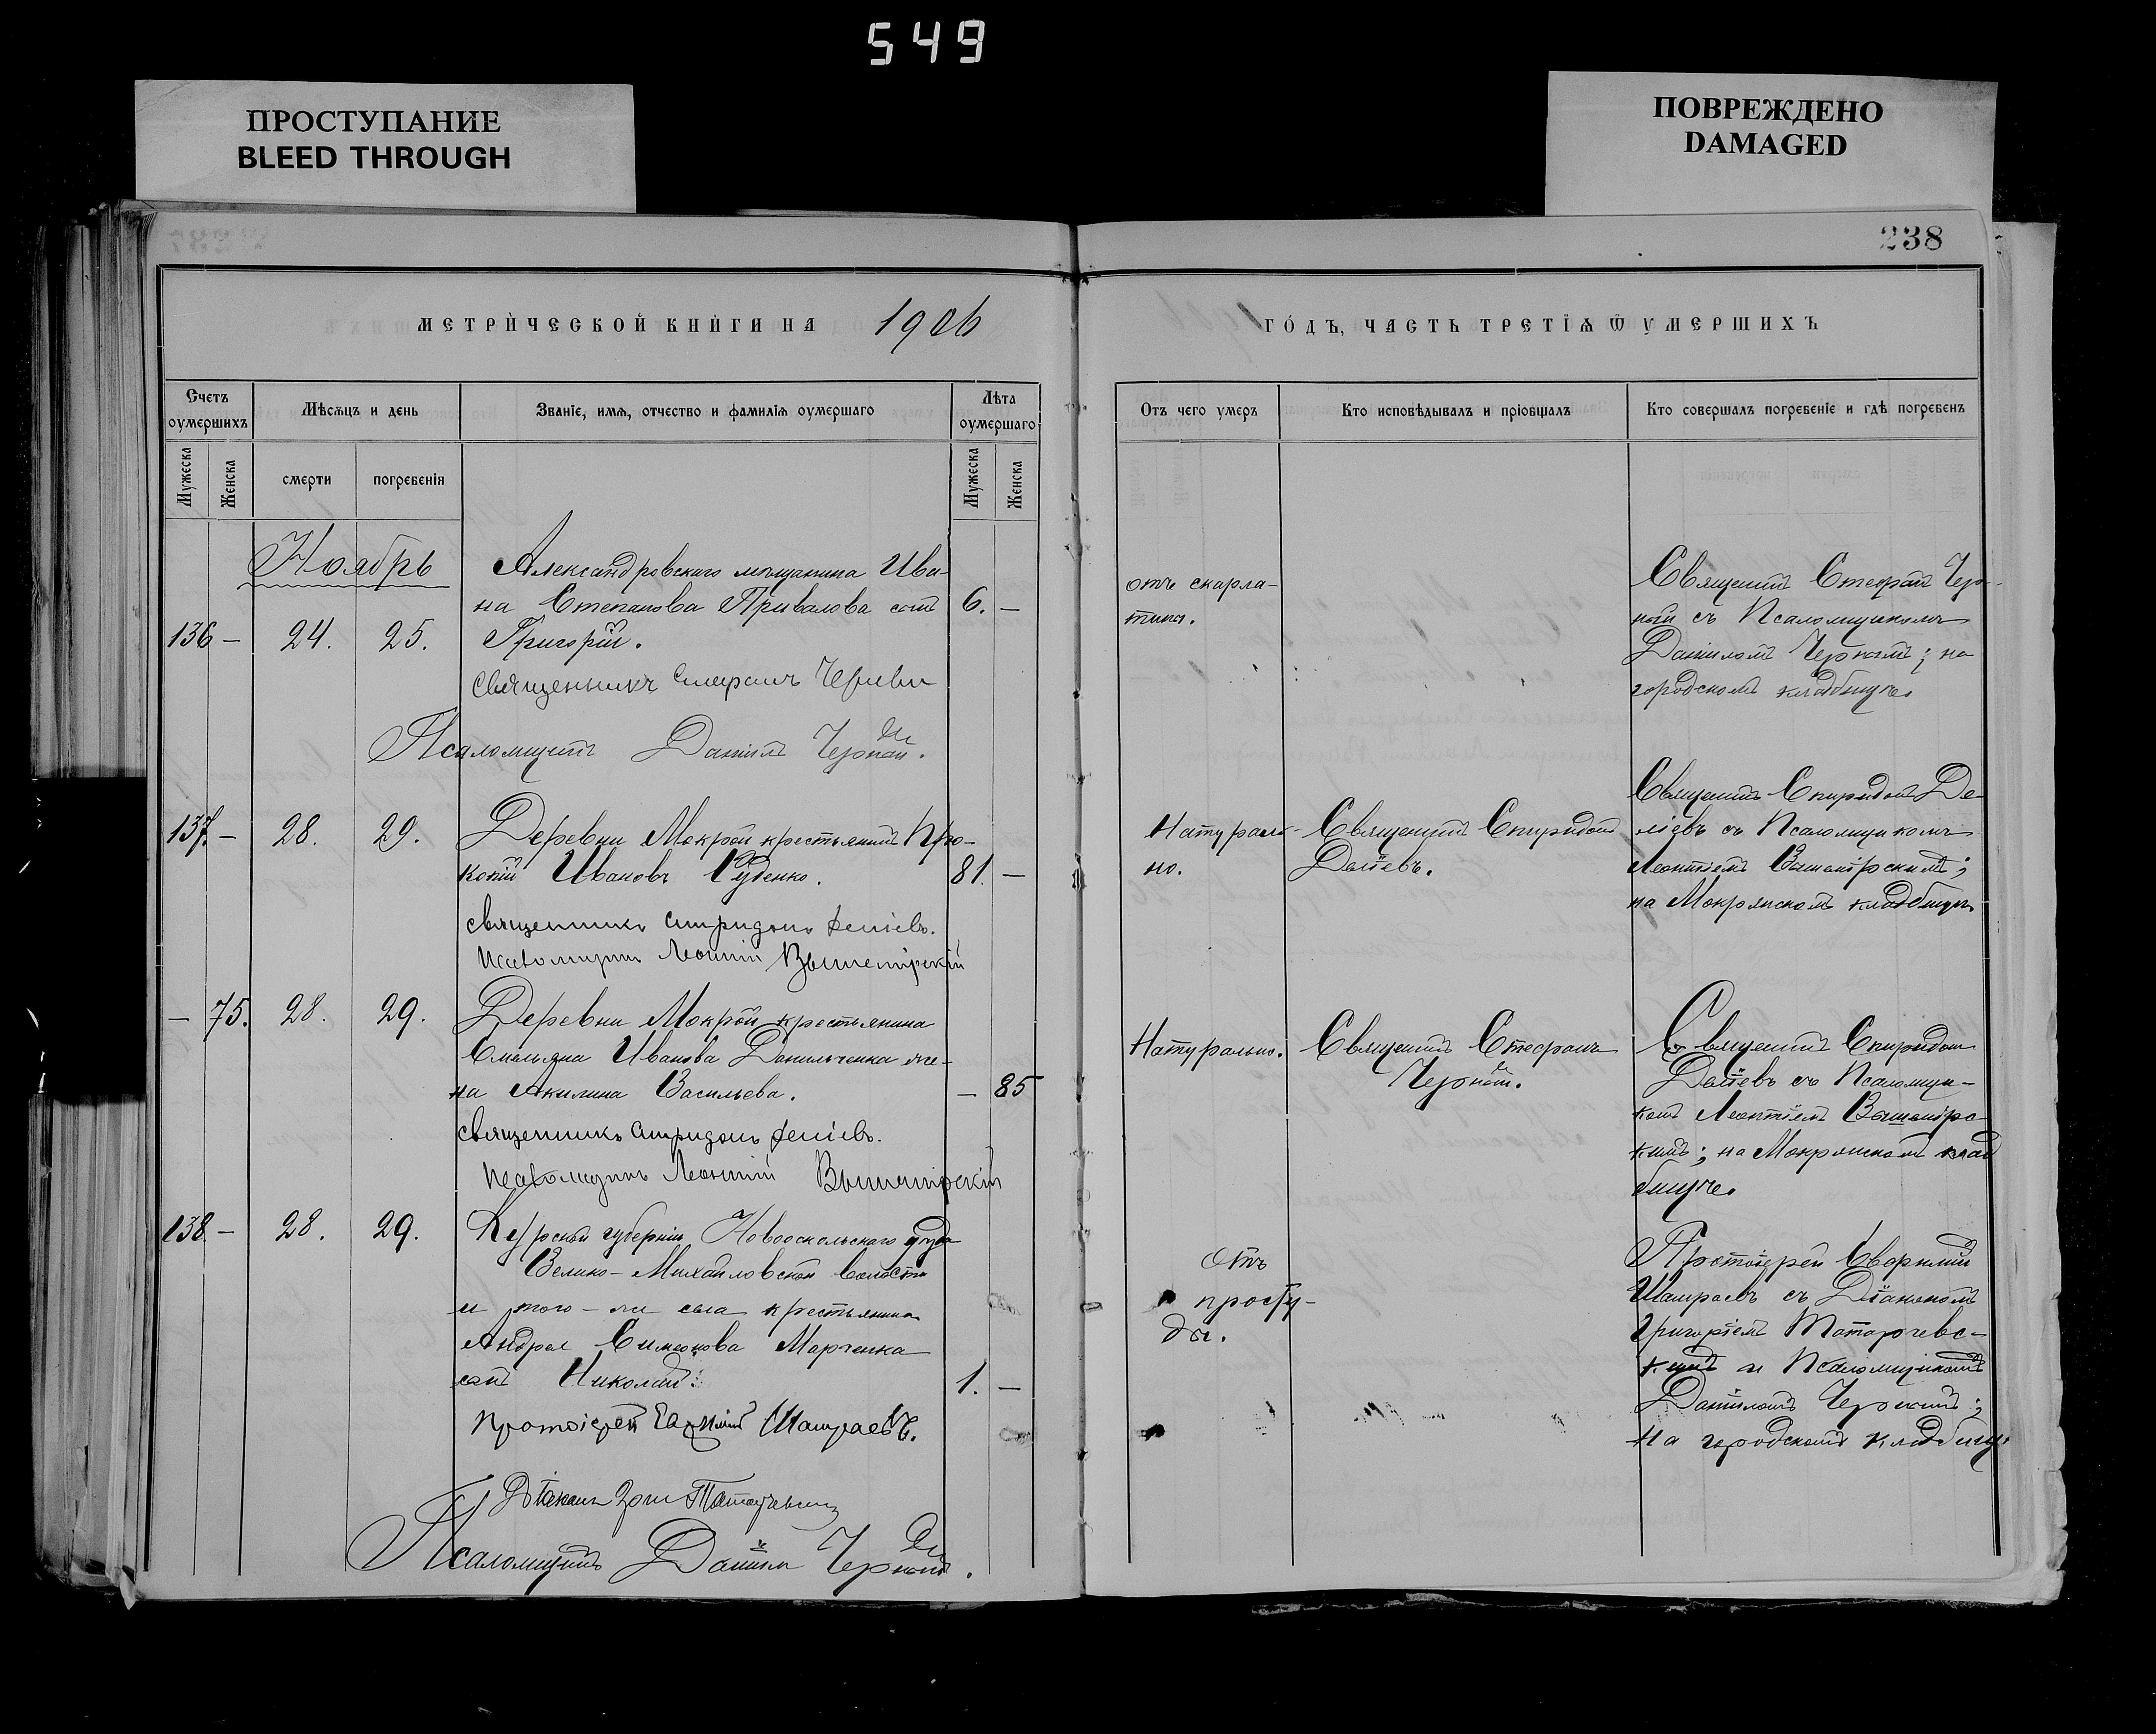 549
ПРОСТУПАНИЕ
BLEED THROUGH
ПОВРЕЖДЕНО
DAMAGED
238
МЕТРИ́ЧЕСКОЙ КНИ́ГИ НА 1906
ГО́ДЪ, ЧАСТЬ ТРЕТІѦ Ѿ УМЕРШИХЪ
Счетъ оумершихъ
Мѣсѧцъ и день
Званіе, имѧ, отчество и фамиліѧ оумершаго
Лѣта оумершаго
Мужеска
Женска
смерти
погребенія
Мужеска
Женска
Отъ чего умеръ
Кто исповѣдывалъ и пріобщалъ
Кто совершалъ погребеніе и гдѣ погребенъ
Ноябрь
136 — 24. 25.
Александровскаго мѣщанина Ива-
на Степанова Привалова сынъ
Григорій.
6. —
Священникъ Стефанъ
Псаломщикъ Даніилъ Черный.
отъ скарла-
тины.
Священникъ Стефанъ Чер-
ный съ Псаломщикомъ
Даніиломъ Чернымъ; на
городскомъ кладбищѣ.
137. — 28. 29.
Деревни Мокрой крестьянинъ Про-
копій Ивановъ Руденко.
81. —
Священникъ Спиридонъ Деліевъ.
Псаломщикъ Леонтій
Натураль-
но.
Священникъ Спиридонъ
Деліевъ.
Священникъ Спиридонъ Де-
ліевъ съ Псаломщикомъ
Леонтіемъ
на Мокрянскомъ кладбищѣ.
— 75. 28. 29.
Деревни Мокрой крестьянина
Емельяна Иванова Данильченка же-
на Акилина Васильева.
— 85
Священникъ Спиридонъ Деліевъ.
Псаломщикъ Леонтій
Натурально.
Священникъ Стефанъ
Черный.
Священникъ Спиридонъ
Деліевъ съ Псаломщи-
комъ Леонтіемъ
кимъ; на Мокрянскомъ клад
бищѣ.
138. — 28. 29.
Курской губерніи, Новооскольскаго уѣзда
Велико-Михайловской волости
и того-же села крестьянина
Андрея Симеонова Марченка
сынъ Николай.
1. —
Протоіерей
Діаконъ
Псаломщикъ Даніилъ Черный.
Отъ
просту-
ды.
Протоіерей
съ Діакономъ
Григоріемъ Татарчевс-
кимъ и Псаломщикомъ
Даніиломъ Чернымъ;
на городскомъ кладбищѣ